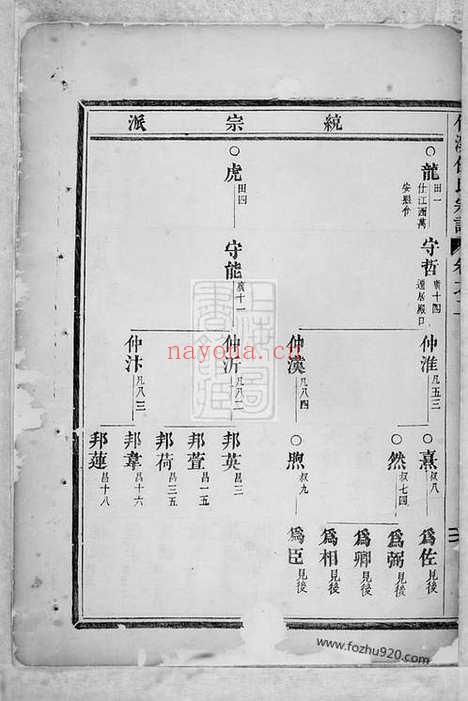 統宗派
龍 田一 仕江西萬安縣令
守哲 廣十四 遷居殿口
仲淮 凡五三
仲漢 凡八四
熹 叔八
然 叔七四
煦 叔九
為佐 見後
為弼 見後
為卿 見後
為相 見後
為臣 見後
虎 田四
守能 廣十一
仲沂 凡八二
仲汴 凡八三
邦英 昌三
邦萱 昌一五
邦荷 昌三五
邦葦 昌十六
邦蓮 昌十八
nayoua.cn
www.fozhu920.com